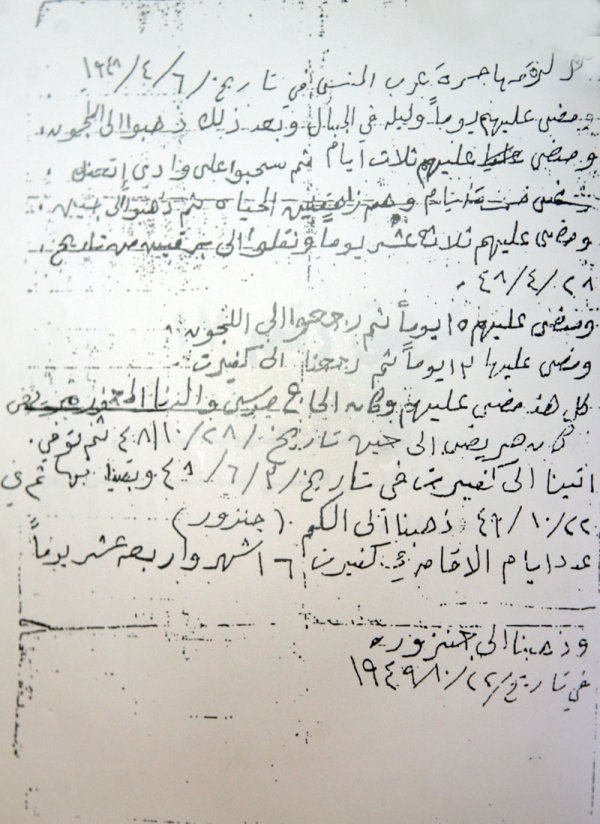 مهاجرة عرب المنسي في تاريخ / ٦ / ٤ / ١٩٤٨
ومضى عليهم يوماً وليله في الجبال وبعد ذلك ذهبوا الى اللجون .
ومضى عليهم ثلاث ايام ثم سحبوا على وادي
الحياه ثم ذهبوا الى جنين .
ومضى عليهم ثلاثة عشر يوماً ونقلوا الى برقين من تاريخ .
٢٨ / ٤ / ٤٨ .
ومضى عليهم ١٥ يوماً ثم رجعوا الى اللجون .
ومضى عليها ٢١ يوماً ثم رجعنا الى كفيرت
كل هذ مضى عليهم وكان الحاج
كان مريض الى حين تاريخ / ٢٨ / ١٠ / ٤٨ ثم توفي .
اتينا الى كفيرت في تاريخ / ٣ / ٦ / ٤٨ وبقينا بها ثم في
٢٢ / ١٠ / ٤٩ ذهبنا الى الكم ( جنزور )
عدد ايام الاقامه في كفيرت ١٦ اشهر واربعه عشر يوماً
وذهبنا الى جنزوره
في تاريخ / ٢٢ / ١٠ / ١٩٤٩